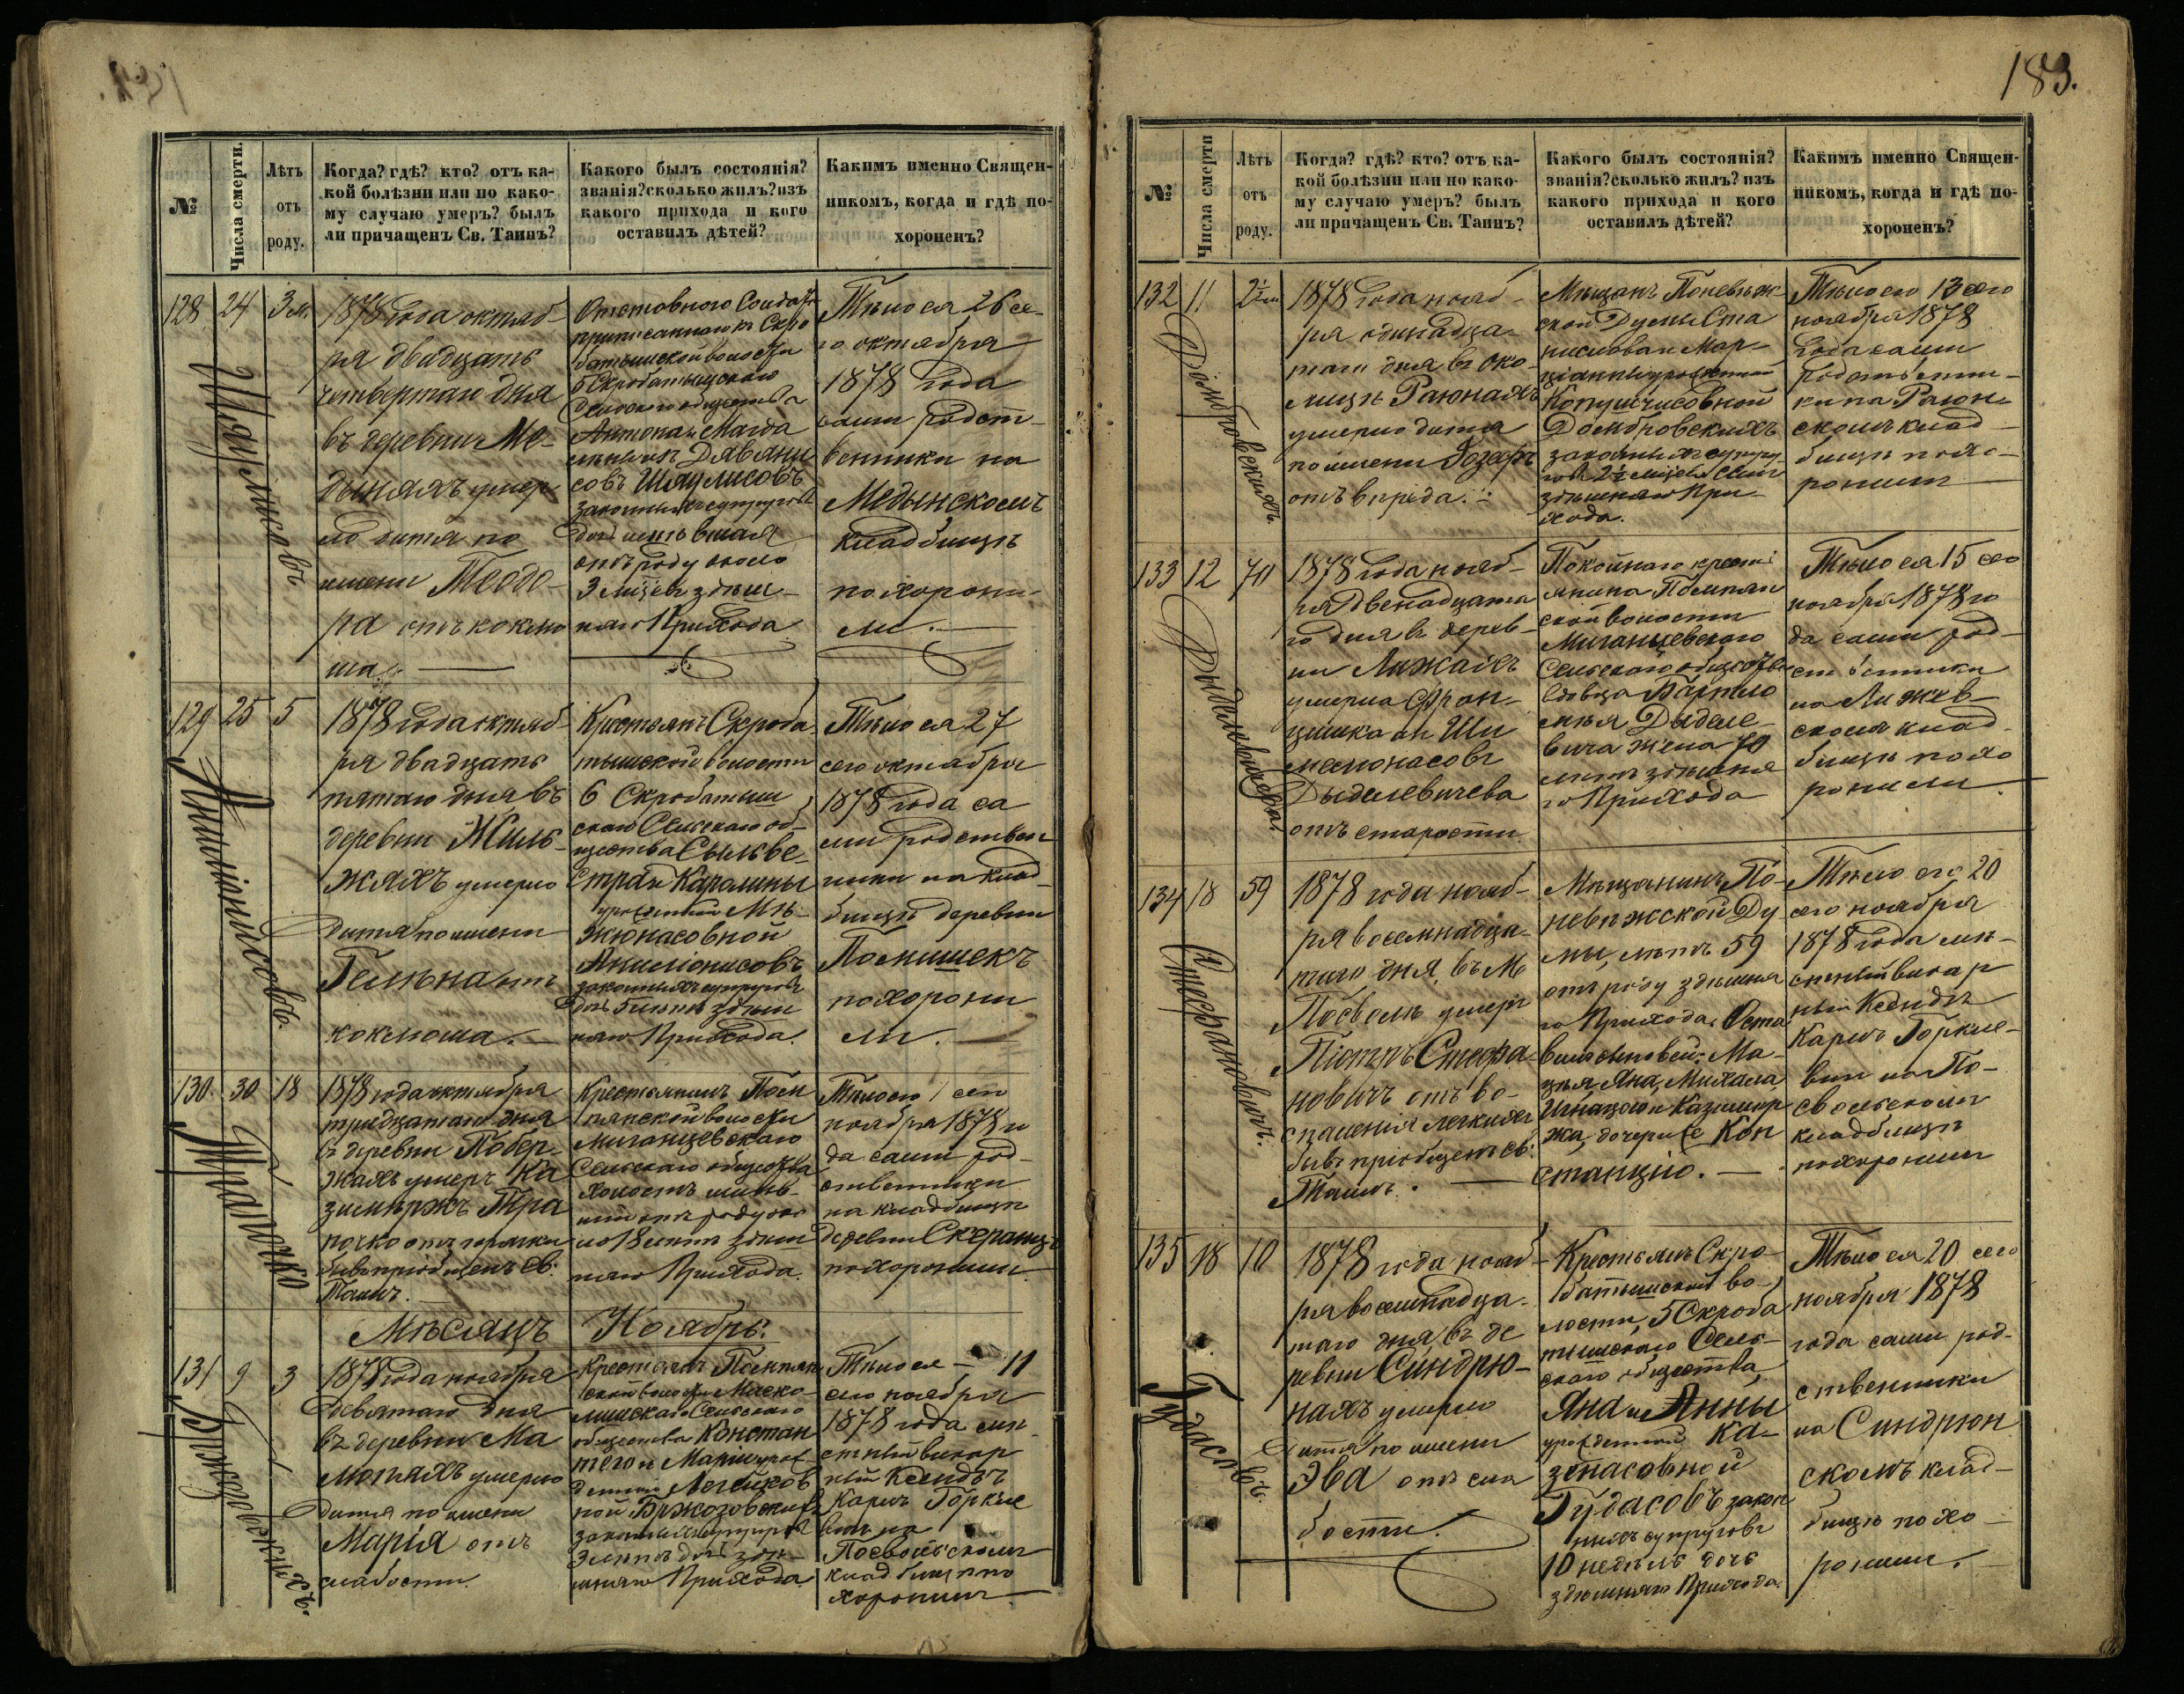 №
Числа смерти.
Лѣтъ
отъ
роду.
Когда? гдѣ? кто? отъ ка-
кой болѣзни или по како-
му случаю умеръ? былъ
ли причащенъ Св. Таинъ?
Какого былъ состоянія?
званія? сколько жилъ? изъ
какого прихода и кого
оставилъ дѣтей?
Какимъ именно Священ-
никомъ, когда и гдѣ по-
хороненъ?
128
24
3 м.
Шяулисовъ
1878 года октяб-
ря двадцать
четвертаго дня
въ деревни Ме-
дыняхъ умер-
ло дитя по
имени Теодо-
ра отъ коклю
ша.
Отставного Солда
приписаннаго къ Скро
батышской волости
6 Скробатышскаго
Сельского общества
Антона и Магда
Шяулисовъ
законныхъ супруговъ
дочь
отъ роду около
3 мѣсяц здѣш-
няго Прихода
Тѣло ея 26 се-
го октября
1878 года
сами родст-
венники на
Медынскомъ
кладбищѣ
похорони-
ли.
129
25
5
1878 года октяб
ря двадцать
пятаго дня въ
деревни Жиль-
жяхъ умерло
дитя по имени
Гелѣна отъ
коклюша.
Крестьянъ Скроба
тышской волости
6 Скробатыш
скаго Сельскаго об-
щества Сильве-
стра и Каролины
урожденной Мѣ-
жюнасовной
законныхъ супруговъ
дочь 5 лѣтъ здѣш
няго Прихода.
Тѣло ея 27
сего октября
1878 года са
ми родствен
ники на клад-
бищѣ деревни
Поснишекъ
похорони
ли.
130.
30
18
Трапочко
1878 года октября
тридцатаго дня
въ деревни Повер-
жахъ умеръ Ка
зимѣржъ Тра
почко отъ горячки
бывъ пріобщенъ Св:
Таинъ.
Крестьянинъ Посн
янской волости
Миганцевскаго
Сельскаго общества
холостъ
отъ роду око
ло 18 лѣтъ здѣш
няго Прихода.
Тѣло его 1 сего
ноября 1878 го
да сами род-
ственники
на кладбищѣ
деревни Скеранцъ
похоронили
Мѣсяцъ Ноябрь.
131
9
3
Бржозовскихъ.
1878 года ноября
девятаго дня
въ деревни Ма
лютахъ умерло
дитя по имени
Марія отъ
слабости.
Крестьянъ
ской волости
Сельскаго
общества Констан
того и Маріи урож-
ной Бржозовскихъ
законныхъ супруговъ
3 лѣтъ дочь здѣ-
шняго Прихода
Тѣло ея — 11
сего ноября
1878 года мѣ-
стный викар
ный Ксендзъ
Карлъ Горкле
вичъ на
Посвольскомъ
кладбищѣ по
хоронилъ
183.
№
Числа смерти
Лѣтъ
отъ
роду.
Когда? гдѣ? кто? отъ ка-
кой болѣзни или по како-
му случаю умеръ? былъ
ли причащенъ Св. Таинъ?
Какого былъ состоянія?
званія? сколько жилъ? изъ
какого прихода и кого
оставилъ дѣтей?
Какимъ именно Священ-
никомъ, когда и гдѣ по-
хороненъ?
132
11
2½ м
Домбровскихъ.
1878 года нояб-
ря одинадца-
таго дня въ око-
лицѣ Раюнахъ
умерло дитя
по имени Іозефъ
отъ вреда.
Мѣщанъ Поневѣж
ской Думы Ста
нислава и Мар-
ціанны урожденной
Домбровскихъ
законныхъ супру
говъ 2½ мѣсяца сынъ
здѣшняго При-
хода.
Тѣло его 13 сего
ноября 1878
года сами
родственни-
ки на Раюн-
скомъ клад-
бищѣ похо-
ронили
133
12
70
Дыделевичева.
1878 года нояб-
ря двенадцата
го дня въ дерев-
ни Лижаяхъ
умерла Фран-
цишка изъ Ши
Дыделевичева
отъ старости.
Покойного кресть
янина
ской волости
Миганцевскаго
Сельскаго общества
вдовца
Дыделе-
вича жена 70
лѣтъ здѣшня
го Прихода
Тѣло ея 15 сего
ноября 1878 го
да сами род-
ственники
на Лижев-
скомъ клад-
бищѣ похо
ронили.
134
18
59
Стефановичъ.
1878 года нояб-
ря восемнадца-
таго дня въ М
Посволѣ умеръ
Піотръ Стефа-
новичъ отъ во-
спаленія легкихъ
бывъ пріобщенъ Св:
Таинъ.
Мѣщанинъ По-
невѣжской Ду
мы, лѣтъ 59
отъ роду здѣшня
го Прихода. Оста
вилъ сыновей: Ма-
цѣя, Яна, Михала
Игнацого и Казимир
жа, дочерь Кон
станцію.
Тѣло его 20
сего ноября
1878 года мѣ-
стный викар
ный Ксендзъ
Карлъ Горкле-
вичъ на По-
свольскомъ
кладбищѣ
похоронилъ
135
18
10
Гудасовъ.
1878 года нояб
ря восемнадца-
таго дня въ де
ревни Синдрю-
няхъ умерло
дитя по имени
Эва отъ сла
бости.
Крестьянъ Скро-
батышской во-
лости, 5 Скроба
тышскаго Сель-
скаго общества,
Яна и Анны
урожденной Ка-
зенасовной
Гудасовъ закон
ныхъ супруговъ
10 недѣль дочь
здѣшняго Прихода.
Тѣло ея 20 сего
ноября 1878
года сами род-
ственники
на Синдрюн
скомъ клад-
бищѣ похо-
ронили.